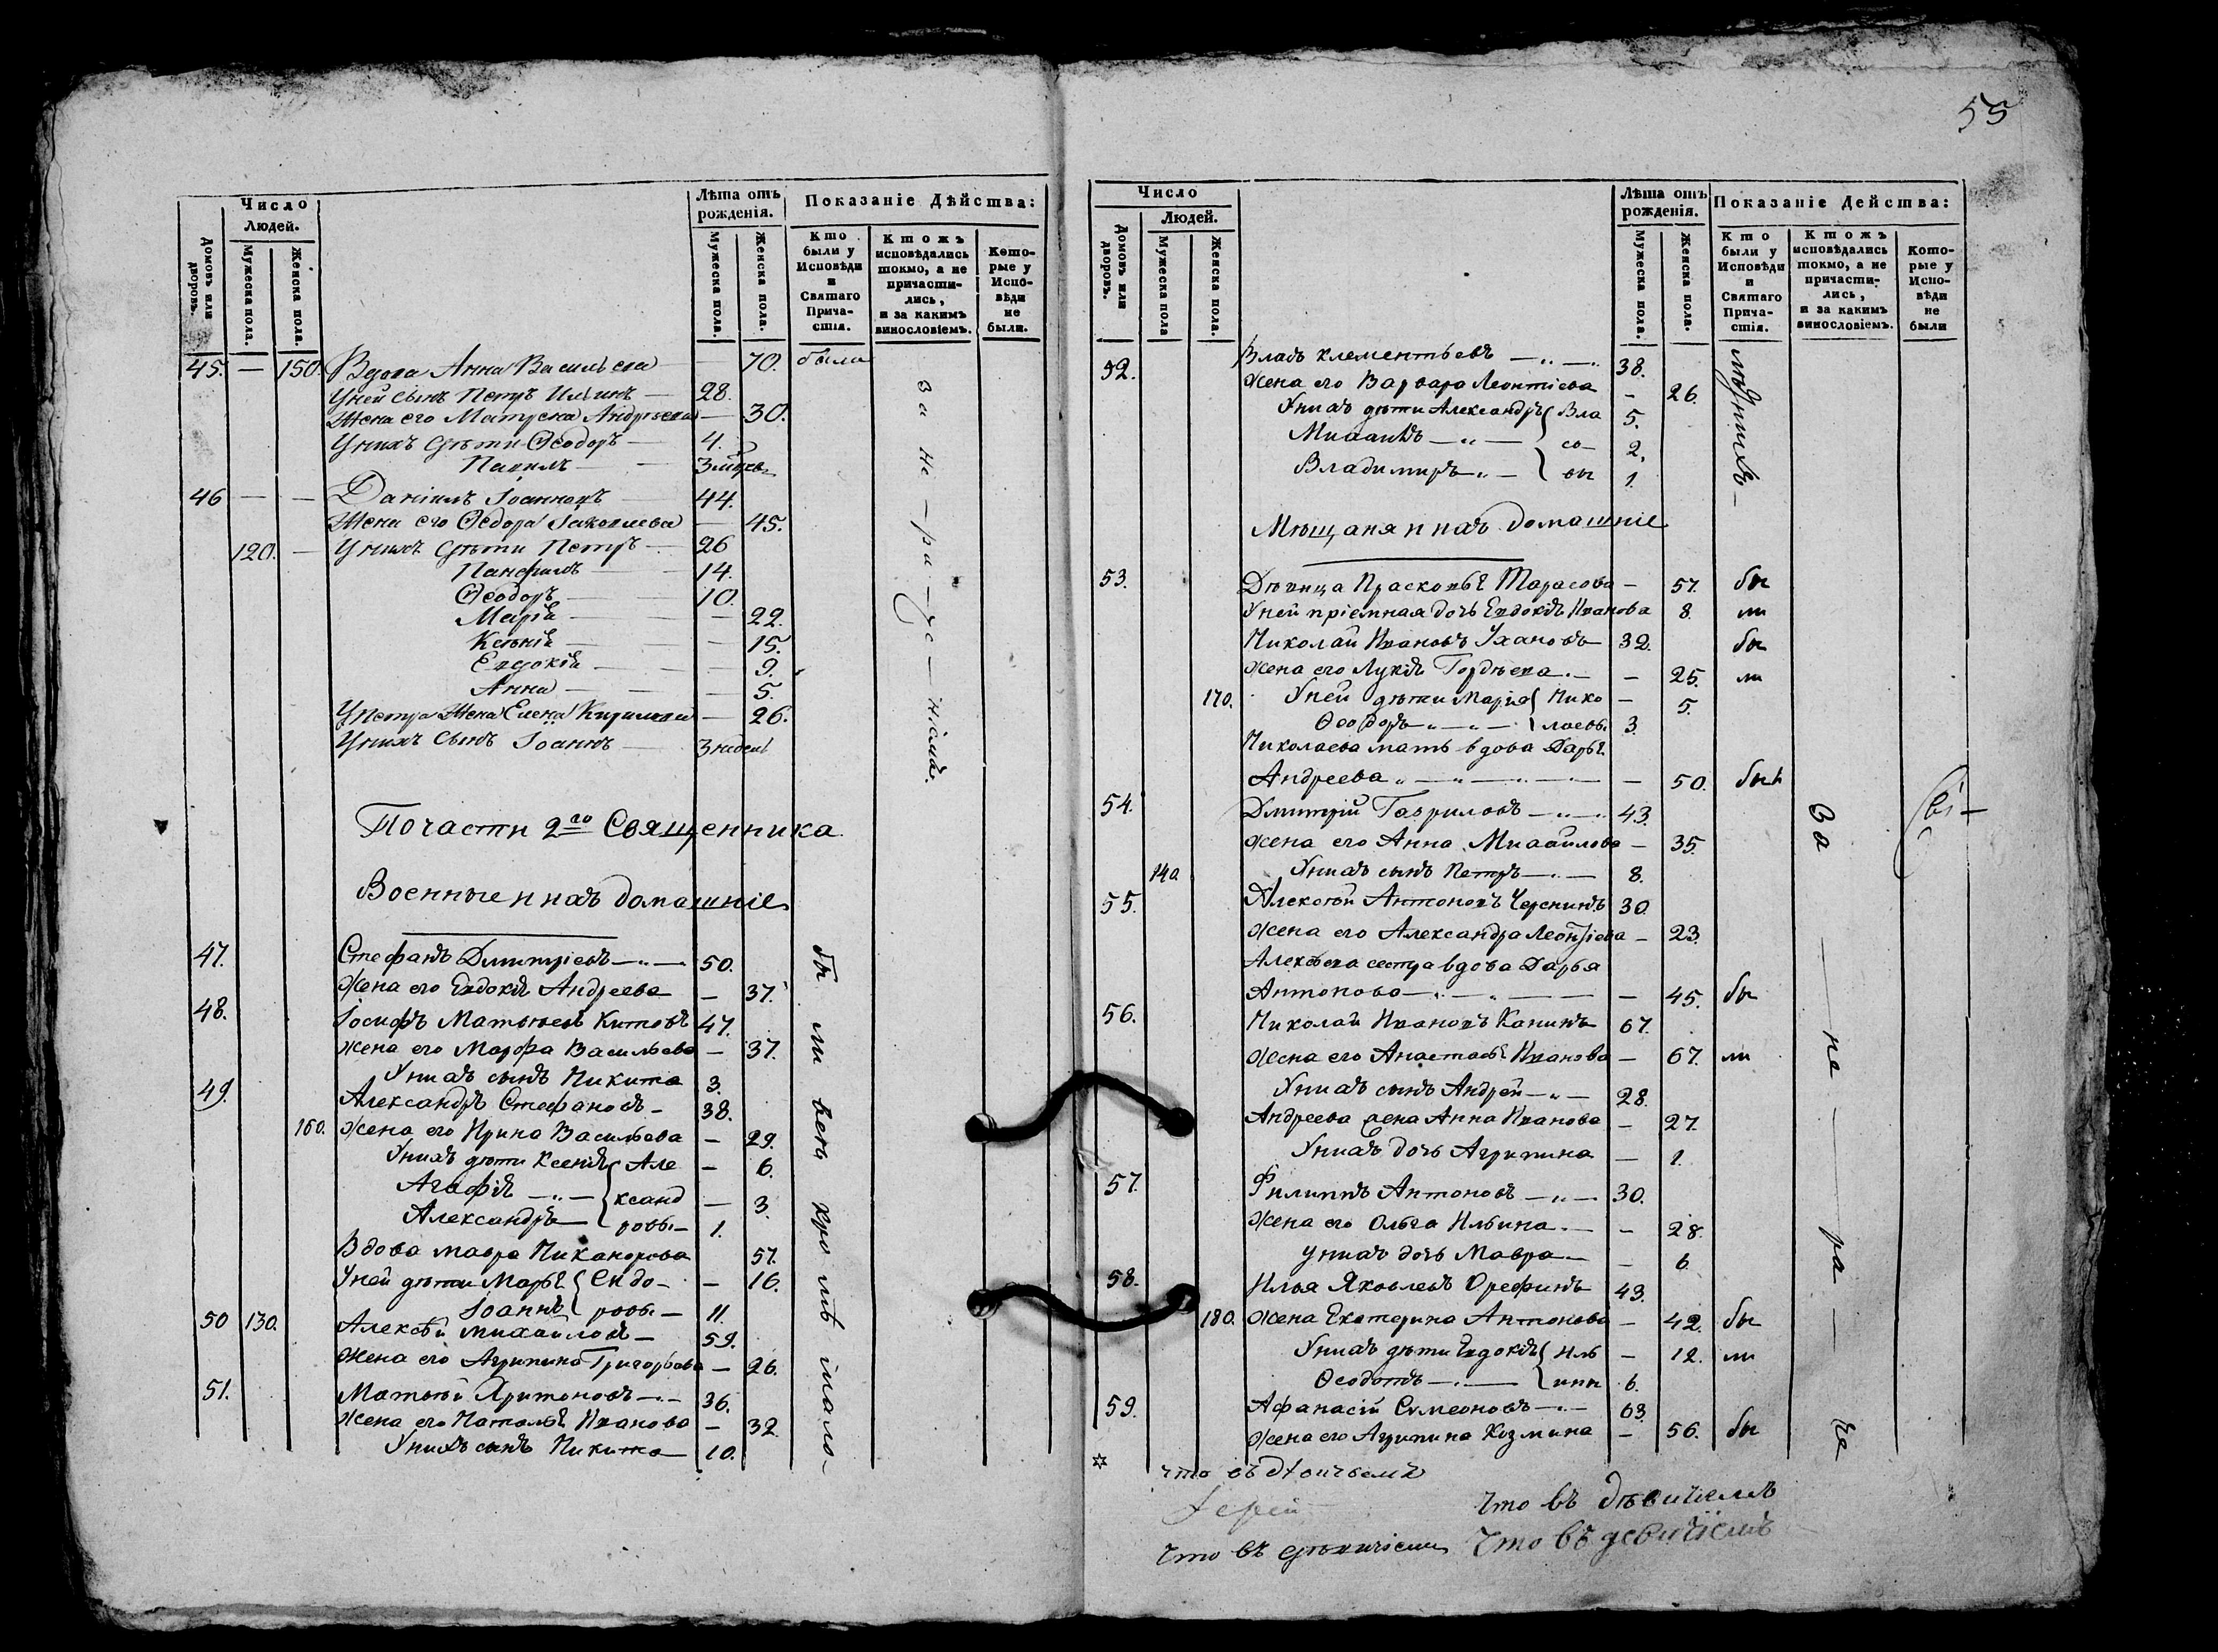 55
Число
Людей.
Домовъ или дворовъ.
Мужеска пола.
Женска пола.
Лѣта отъ рожденія.
Мужеска пола.
Женска пола.
Показаніе Дѣйства:
Кто были у Исповѣди и Святаго Причастія.
Ктожъ исповѣдались токмо, а не причастились, и за какимъ винословіемъ.
Которые у Исповѣди не были.
45. — 150. Вдова Анна Васильева — 70. была
Уней сынъ Петръ Ильинъ — 28.
Жена его Матрена Андреева — 30.
Унихъ дѣти Ѳеодоръ — 4.
46 — — Даніилъ Іоанновъ 44.
Жена его Ѳедора Іаковлева — 45.
120. — Унихъ дѣти Петръ — 26
Панфилъ — 14.
Ѳеодоръ — 10.
Марія — — 22.
Ксенія — — 15.
Евдокія — — 9.
Анна — — 5.
УПетра Жена Елена Кирилова — 26.
Унихъ сынъ Іоаннъ — 3 недел
за не — ра — че — ніемъ.
Почасти 2го Священника
Военные и ихъ домашніе
47. Стефанъ Дмитріевъ — 50.
Жена его Евдокія Андреева — 37.
48. Іосифъ Матвѣевъ Китовъ 47.
Жена его Марфа Васильева — 37.
Унихъ сынъ Никита 3.
49. Александръ Стефановъ — 38.
160. Жена его Ирина Васильева — 29.
Унихъ дѣти Ксенія { Але — 6.
Агафія — { ксанд — 3.
Александръ — { ровы — 1.
Вдова Мавра Никандрова 57.
Уней дѣти Марья { — 16.
Іоаннъ { ровы — 11.
50 130. Алексѣй Михайловъ — 59.
Жена его Агрипина Григорьева — 26.
51. Матвѣй Харитоновъ — 36.
Жена его Наталья Иванова — 32
Унихъ сынъ Никита — 10.
бы ли всѣ кромѣ мало-
Число
Людей.
Домовъ или дворовъ.
Мужеска пола
Женска пола.
Лѣта отъ рожденія.
Мужеска пола.
Женска пола.
Показаніе Действа:
Кто были у Исповѣди и Святаго Причастія.
Ктожъ исповѣдались токмо, а не причастились, и за какимъ винословіемъ.
Которые у Исповѣди не были
52. Владъ Клементьевъ — 38.
Жена его Варвара Леонтіева — 26.
Унихъ дѣти Александръ { Вла 5.
Михаилъ — { со- 2.
Владимиръ — { вы 1.
Мѣщаня и ихъ домашніе
53. Дѣвица Прасковья Тарасова — 57. бы
Уней пріемная дочь Евдокія Иванова 8. ли
Николай Ивановъ Ухановъ — 32. бы
Жена его Лукія Гордѣева — 25. ли
170. Уней дѣти Марія { Нико — 5.
Ѳеодоръ — { лаевы. 3.
Николаева мать вдова Дарья
Андреева — — 50. был
54. Дмитрій Гавриловъ — 43.
Жена его Анна Михайлова — 35.
140. Унихъ сынъ Петръ — 8.
55. Алексѣй Антоновъ 30.
Жена его Александра Леонтіева — 23.
Алексѣева сестра вдова Дарья
Антонова — — 45. бы
56. Николай Ивановъ Канинъ 67.
Жена его Анастасья Иванова — 67. ли
Унихъ сынъ Андрей — 28.
Андреева жена Анна Иванова — 27.
Унихъ дочь Агрипина — 1.
57. Филиппъ Антоновъ — 30.
Жена его Ольга Ильина — 28.
унихъ дочь Мавра — 6
58. Илья Яковлевъ Орефинъ 43.
180. Жена Екатерина Антонова — 42. бы
Унихъ дѣти Евдокія { Иль — 12. ли
Ѳеодотъ — { ины 6.
59. Афанасій Симеоновъ — 63.
Жена его Агрипина Козмина — 56. бы
за — не — ра — че
что въ
что въ
что въ
что въ